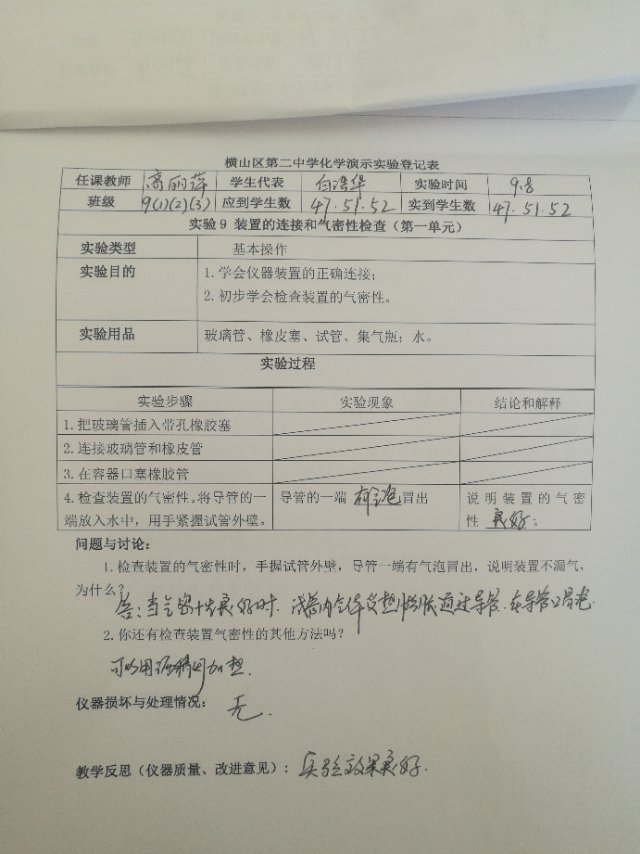 横山区第二中学化学演示实验登记表
任课教师 高丽萍 学生代表 白浩华 实验时间 9.8
班级 9(1)(2)(3) 应到学生数 47.51.52 实到学生数 47.51.52
实验9 装置的连接和气密性检查（第一单元）
实验类型 基本操作
实验目的 1.学会仪器装置的正确连接；
2.初步学会检查装置的气密性。
实验用品 玻璃管、橡皮塞、试管、集气瓶；水。
实验过程
实验步骤 实验现象 结论和解释
1.把玻璃管插入带孔橡胶塞
2.连接玻璃管和橡皮管
3.在容器口塞橡胶管
4.检查装置的气密性。将导管的一 导管的一端 有气泡 冒出 说明装置的气密
端放入水中，用手紧握试管外壁。 性 良好；
问题与讨论：
1.检查装置的气密性时，手握试管外壁，导管一端有气泡冒出，说明装置不漏气，
为什么？
答：当气密性良好时，试管内气体受热膨胀通过导管，在导管口冒泡.
2.你还有检查装置气密性的其他方法吗？
可以用酒精灯加热.
仪器损坏与处理情况： 无.
教学反思（仪器质量、改进意见）：实验效果良好.